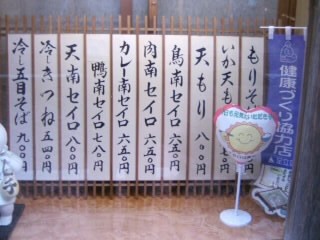 もりそ
いか天も
天もり 八〇〇
鳥南セイロ 六五〇
肉南セイロ 六五〇
カレー南セイロ 六五〇
鴨南セイロ 七八〇
天南セイロ 八〇〇
冷しきつね 五四〇
冷し五目そば 九〇〇
健康づくり協力店